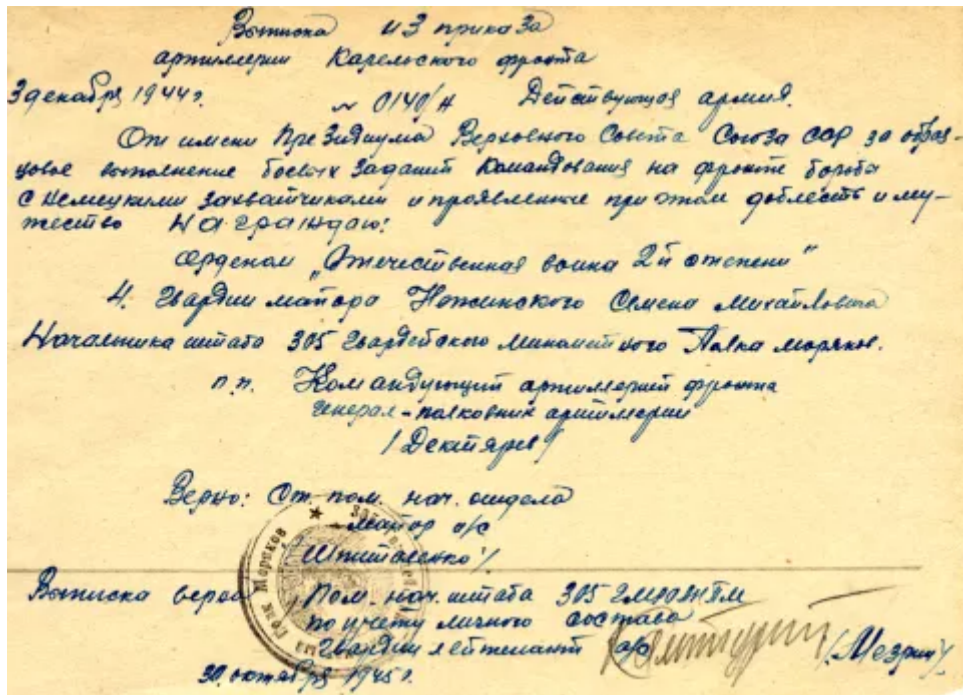 Выписка из приказа
артиллерии Карельского фронта
3 декабря 1944 г. № 0140/Н Действующая армия.
От имени Президиума Верховного Совета Союза ССР за образ-
цовое выполнение боевых заданий Командования на фронте борьбы
с немецкими захватчиками и проявленные при этом доблесть и му-
жество награждаю:
Орденом „Отечественная война 2й степени"
4. Гвардии майора Семена Михайловича
Начальника штаба 305 Гвардейского Минометного Полка моряков.
п.п. Командующий артиллерией фронта
генерал-полковник артиллерии
/Дектярев/
Верно: Ст. пом. нач. отдела
майор а/с
Выписка верна Пом. нач. штаба 305
по учету личного состава
гвардии лейтенант а/с (Мезрин)
30 октября 1945 г.
Полк Моряков